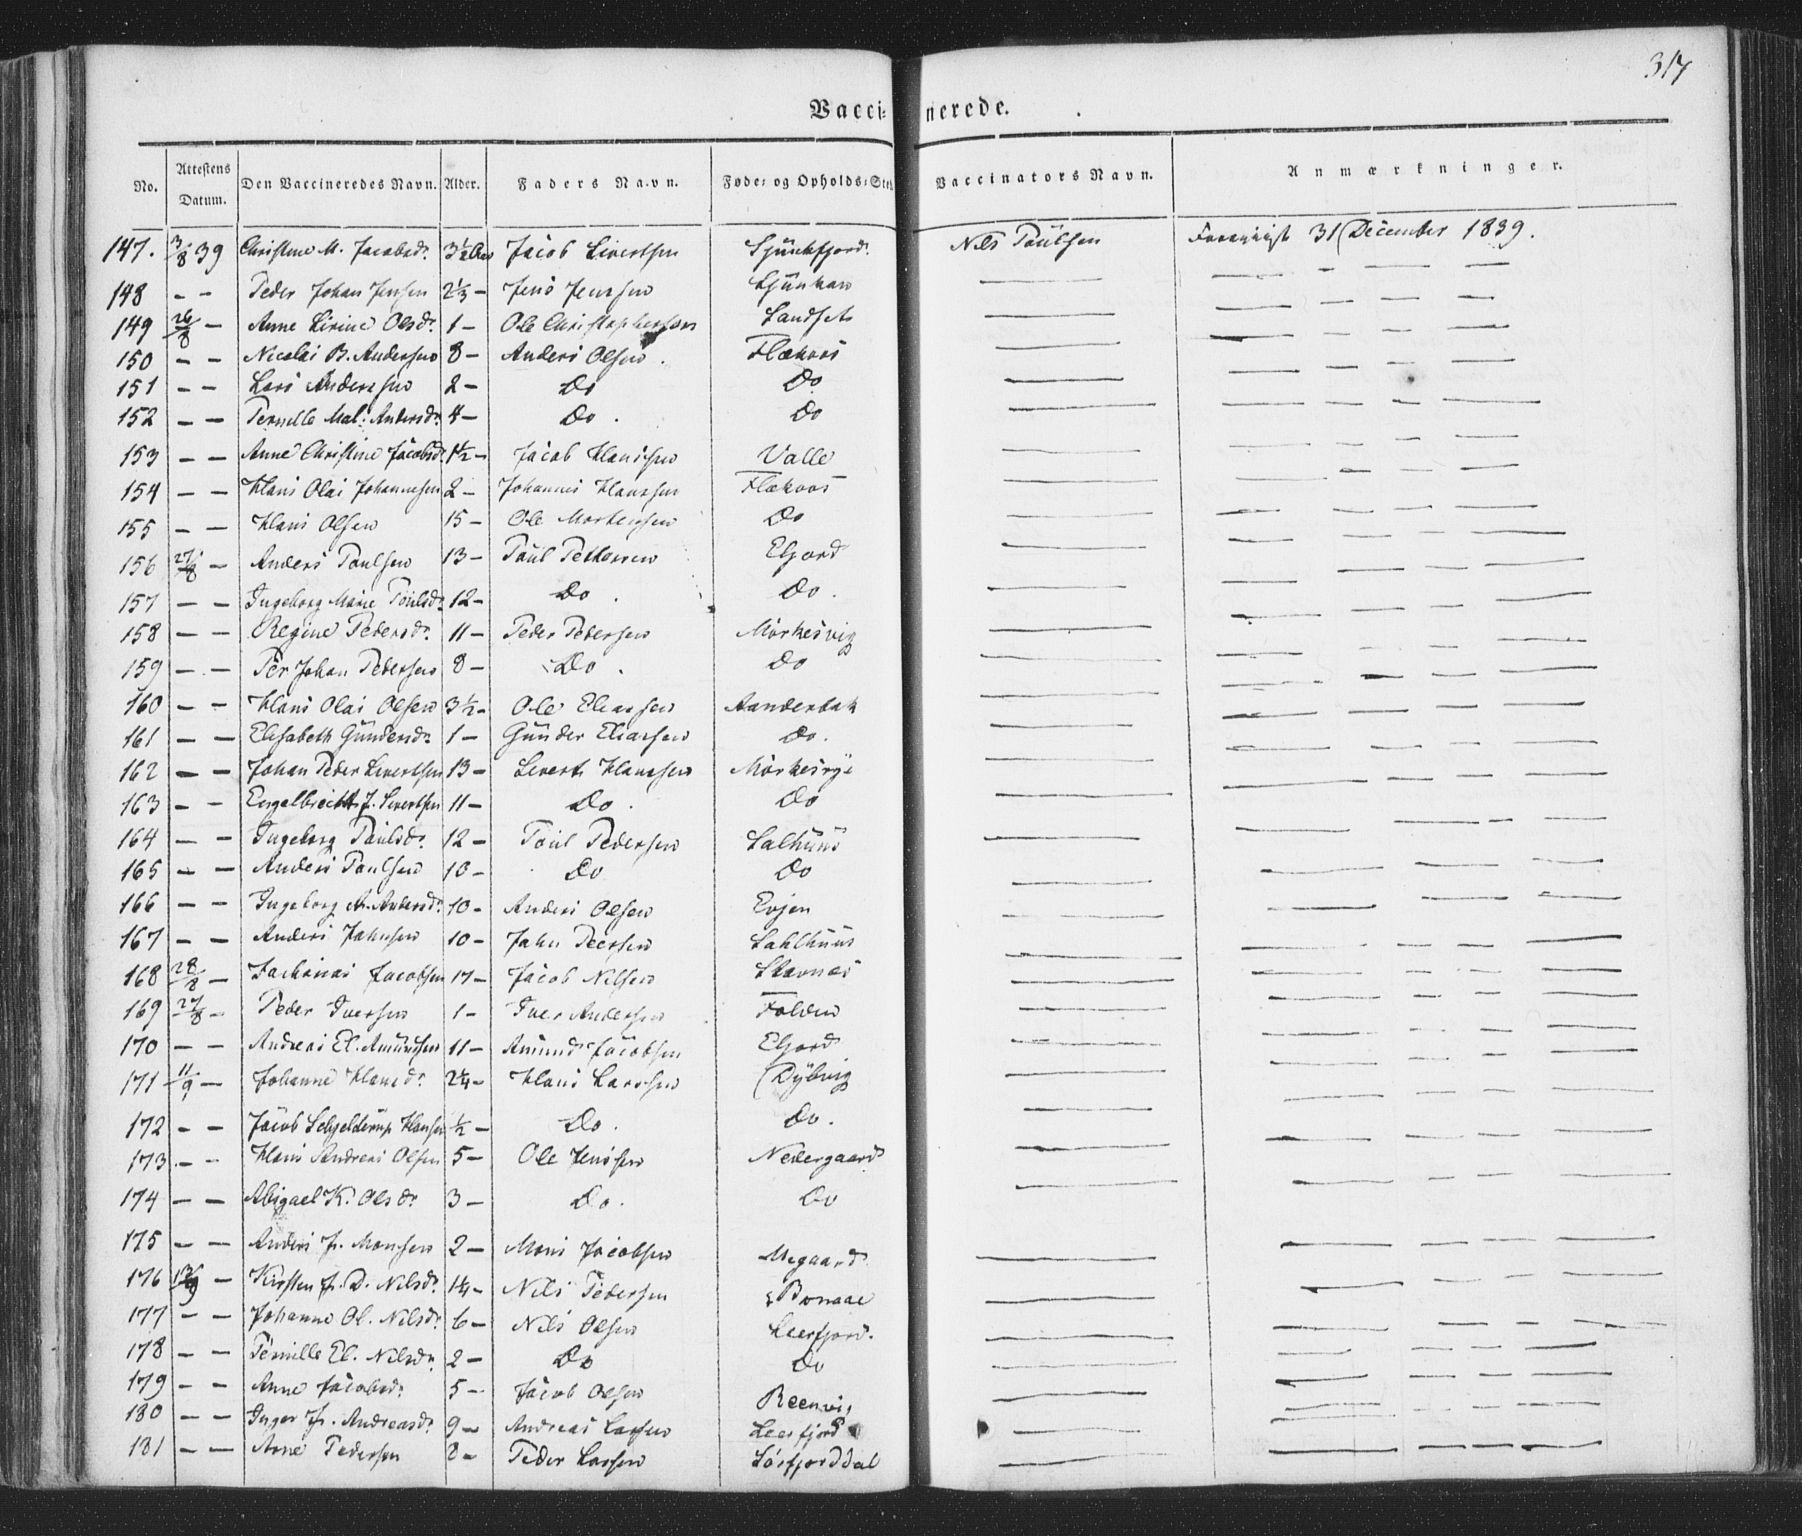 317
Vaccinerede.
No. Attestens Datum. Den Vaccineredes Navn. Alder. Faders Navn. Føde- og Opholds-Sted. Vaccinators Navn. Anmærkninger.
147. 3/8 39 Christine M. Jacobsdr. 3½ Jacob Sivertsen Nils Paulsen 31 December 1839.
148 — — Peder Johan Jensen 2⅓ — Jens Jenssen
149 26/8 — Anne Sirine Olsdr. 1 — Ole Christophersen Sandset
150 — — Nicolai B. Andersen 8 — Anders Olsen Flækoos
151 — — Lars Andersen 2 — Do Do
152 — — Pernille Mal: Andersdr. 4 — Do. Do
153 — — Anne Christine Jacobsdr. 1½ — Jacob Hanssen Valle
154 — — Hans Olai Johannesen 2 — Johannes Hanssen Flækoos
155 — — Hans Olsen 15 — Ole Mortensen Do
156 27/8 — Anders Paulsen 13 — Paul Pettersen Elgjord
157 — — Ingeborg Marie Paulsdr. 12 — Do. Do.
158 — — Regine Pedersdr. 11 — Peder Pedersen Mørkesvig
159 — — Per Johan Pedersen 8 — Do. Do
160 — — Hans Olai Olsen 3½ — Ole Eliassen Aanderbak
161 — — Elisabeth Gundersdr. 1 — Gunder Eliassen Do.
162 — — Johan Peder Sivertsen 13 — Sivert Hanssen
163 — — Engelbrecht J. Sivertsen 11 — Do. Do
164 — — Ingeborg Paulsdr. 12 — Paul Pedersen Salhuus
165 — — Anders Paulsen 10 — Do Do
166 — — Ingeborg A. Andersdr. 10 — Anders Olsen Evjen
167 — — Anders Jahnsen 10 — Jahn Peersen Sahlhuus
168 28/8 — Zacharias Jacobsen 17 — Jacob Nilsen Stavnæs
169 27/8 — Peder Iversen 1 — Iver Andersen Folden
170 — — Andreas El. Amundsen 11 — Amund Jacobsen Elgjord
171 11/9 — Johanne Hansdr. 2¼ — Hans Larssen Dybvig
172 — — Jacob Schjelderup Hansen ½ — Do. Do.
173 — — Hans Andreas Olsen 5 — Ole Jenssen Nedergaard
174 — — Abigael K. Olsdr. 3 — Do. Do
175 — — Anders J. Monsen 2 — Mons Jacobsen
176 — Kirsten J. D. Nilsdr. 1¼ — Nils Pedersen Bonaae
177 — — Johanne Ol. Nilsdr. 6 — Nils Olsen Leerfjord.
178 — — Pernille El. Nilsdr. 2 — Do Do
179 — — Anne Jacobsdr. 5 — Jacob Olsen Reenvig
180 — — Inger J. Andreasdr. 9 — Andreas Larsen Leerfjord
181 — — Arne Pedersen 8 — Peder Larsen Sørfjorddal